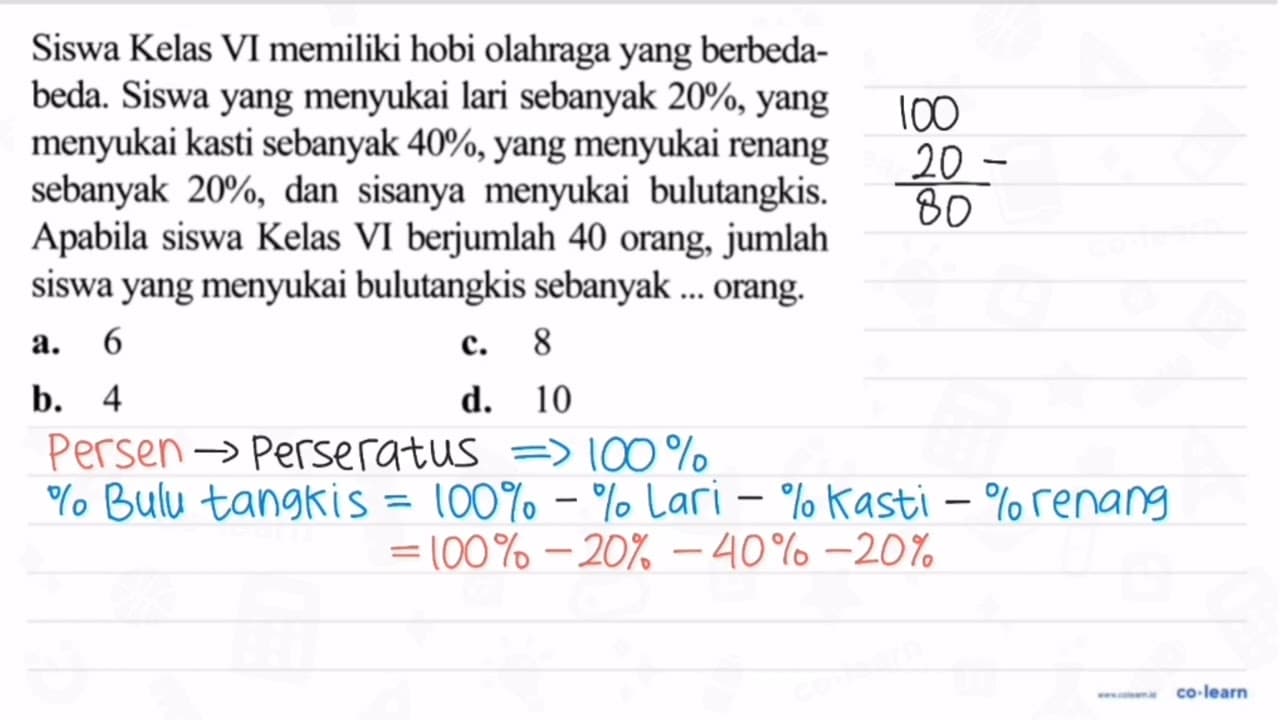 Siswa Kelas VI memiliki hobi olahraga yang berbeda-
beda. Siswa yang menyukai lari sebanyak 20%, yang
menyukai kasti sebanyak 40%, yang menyukai renang
sebanyak 20%, dan sisanya menyukai bulutangkis.
Apabila siswa Kelas VI berjumlah 40 orang, jumlah
siswa yang menyukai bulutangkis sebanyak ... orang.
a. 6 c. 8
b. 4 d. 10
100
20 −
80
Persen → Perseratus => 100%
% Bulu tangkis = 100% − % Lari − % Kasti − % renang
= 100% − 20% − 40% − 20%
www.colearn.id co·learn